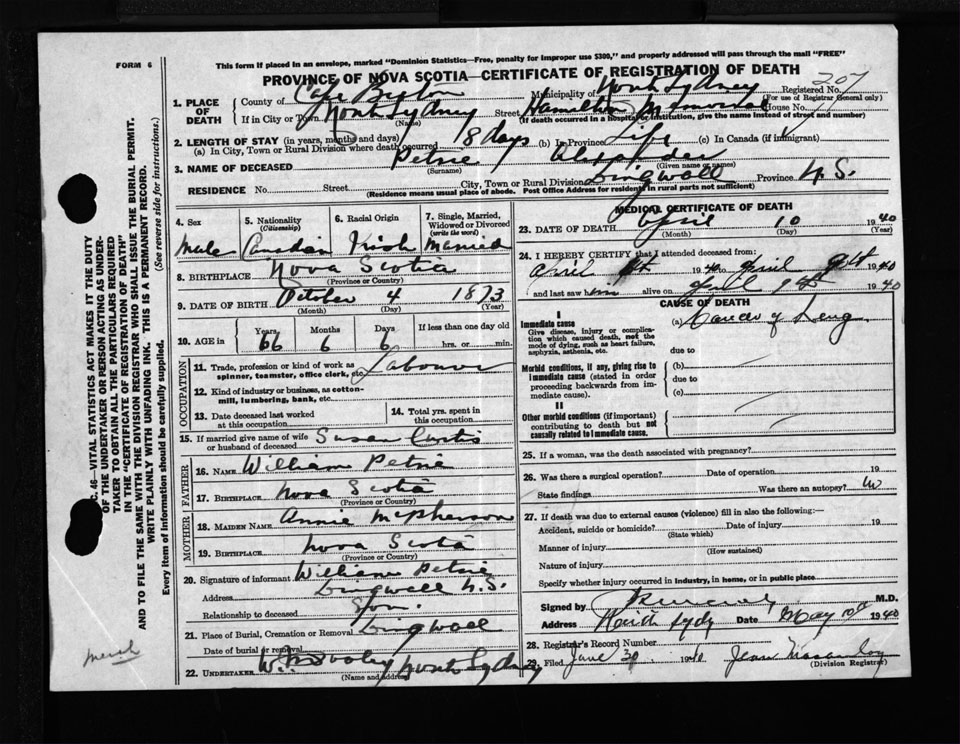 FORM 6
This form if placed in an envelope, marked "Dominion Statistics—Free, penalty for improper use $300," and properly addressed will pass through the mail "FREE"
PROVINCE OF NOVA SCOTIA—CERTIFICATE OF REGISTRATION OF DEATH
Registered No. 207
(For use of Registrar General only)
1. PLACE OF DEATH County of Cape Breton Municipality of North Sydney
If in City or Town North Sydney Street Hamilton Memorial House No.
(Name) (If death occurred in a hospital or institution, give the name instead of street and number)
2. LENGTH OF STAY (in years, months and days)
(a) In City, Town or Rural Division where death occurred 18 days (b) In Province Life (c) In Canada (if immigrant)
3. NAME OF DECEASED Petrie Alexander
(Surname) (Given name or names)
RESIDENCE No. Street City, Town or Rural Division Dingwall Province N.S.
(Residence means usual place of abode. Post Office Address for residents in rural parts not sufficient)
4. Sex Male
5. Nationality (Citizenship) Canadian
6. Racial Origin Irish
7. Single, Married, Widowed or Divorced (write the word) Married
8. BIRTHPLACE Nova Scotia
(Province or Country)
9. DATE OF BIRTH October 4 1873
(Month) (Day) (Year)
10. AGE in Years 66 Months 6 Days 6 If less than one day old hrs. or min.
OCCUPATION
11. Trade, profession or kind of work as spinner, teamster, office clerk, etc. Labourer
12. Kind of industry or business, as cotton-mill, lumbering, bank, etc.
13. Date deceased last worked at this occupation
14. Total yrs. spent in this occupation
15. If married give name of wife or husband of deceased Susan Curtis
FATHER
16. NAME William Petrie
17. BIRTHPLACE Nova Scotia
(Province or Country)
MOTHER
18. MAIDEN NAME Annie McPherson
19. BIRTHPLACE Nova Scotia
(Province or Country)
20. Signature of informant William Petrie
Address Dingwall N.S.
Relationship to deceased Son.
21. Place of Burial, Cremation or Removal Dingwall
Date of burial or removal
22. UNDERTAKER North Sydney
(Name and address)
MEDICAL CERTIFICATE OF DEATH
23. DATE OF DEATH April 10 1940
(Month) (Day) (Year)
24. I HEREBY CERTIFY that I attended deceased from:
April 1940 to April 9th 1940
and last saw him alive on April 9th 1940
CAUSE OF DEATH
I
Immediate cause (a) Cancer of Lung
Give disease, injury or complication which caused death, not the mode of dying, such as heart failure, asphyxia, asthenia, etc.
due to
Morbid conditions, if any, giving rise to immediate cause (stated in order proceeding backwards from immediate cause). (b)
due to
(c)
II
Other morbid conditions (if important) contributing to death but not causally related to immediate cause.
25. If a woman, was the death associated with pregnancy?
26. Was there a surgical operation? Date of operation 19
State findings Was there an autopsy?
27. If death was due to external causes (violence) fill in also the following:—
Accident, suicide or homicide? Date of injury 19
(State which)
Manner of injury
(How sustained)
Nature of injury
Specify whether injury occurred in industry, in home, or in public place
Signed by M.D.
Address North Sydy Date May 10th 1940
28. Registrar's Record Number
29. Filed June 30 1940 Jean
(Division Registrar)
C. 46—VITAL STATISTICS ACT MAKES IT THE DUTY
OF THE UNDERTAKER OR PERSON ACTING AS UNDERTAKER TO OBTAIN ALL THE PARTICULARS REQUIRED
IN THE "CERTIFICATE OF REGISTRATION OF DEATH"
AND TO FILE THE SAME WITH THE DIVISION REGISTRAR WHO SHALL ISSUE THE BURIAL PERMIT.
WRITE PLAINLY WITH UNFADING INK. THIS IS A PERMANENT RECORD.
Every item of information should be carefully supplied. (See reverse side for instructions.)